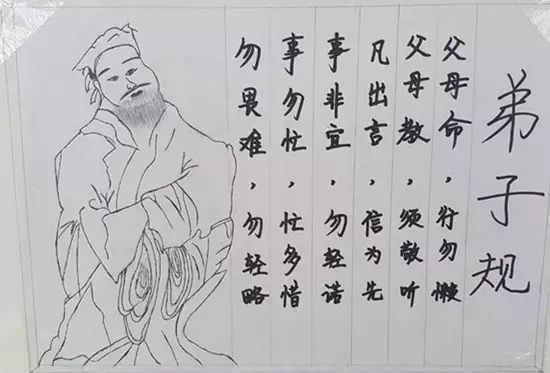 弟子规
父母命，行勿懒
父母教，须敬听
凡出言，信为先
事非宜，勿轻诺
事勿忙，忙多惜
勿畏难，勿轻略